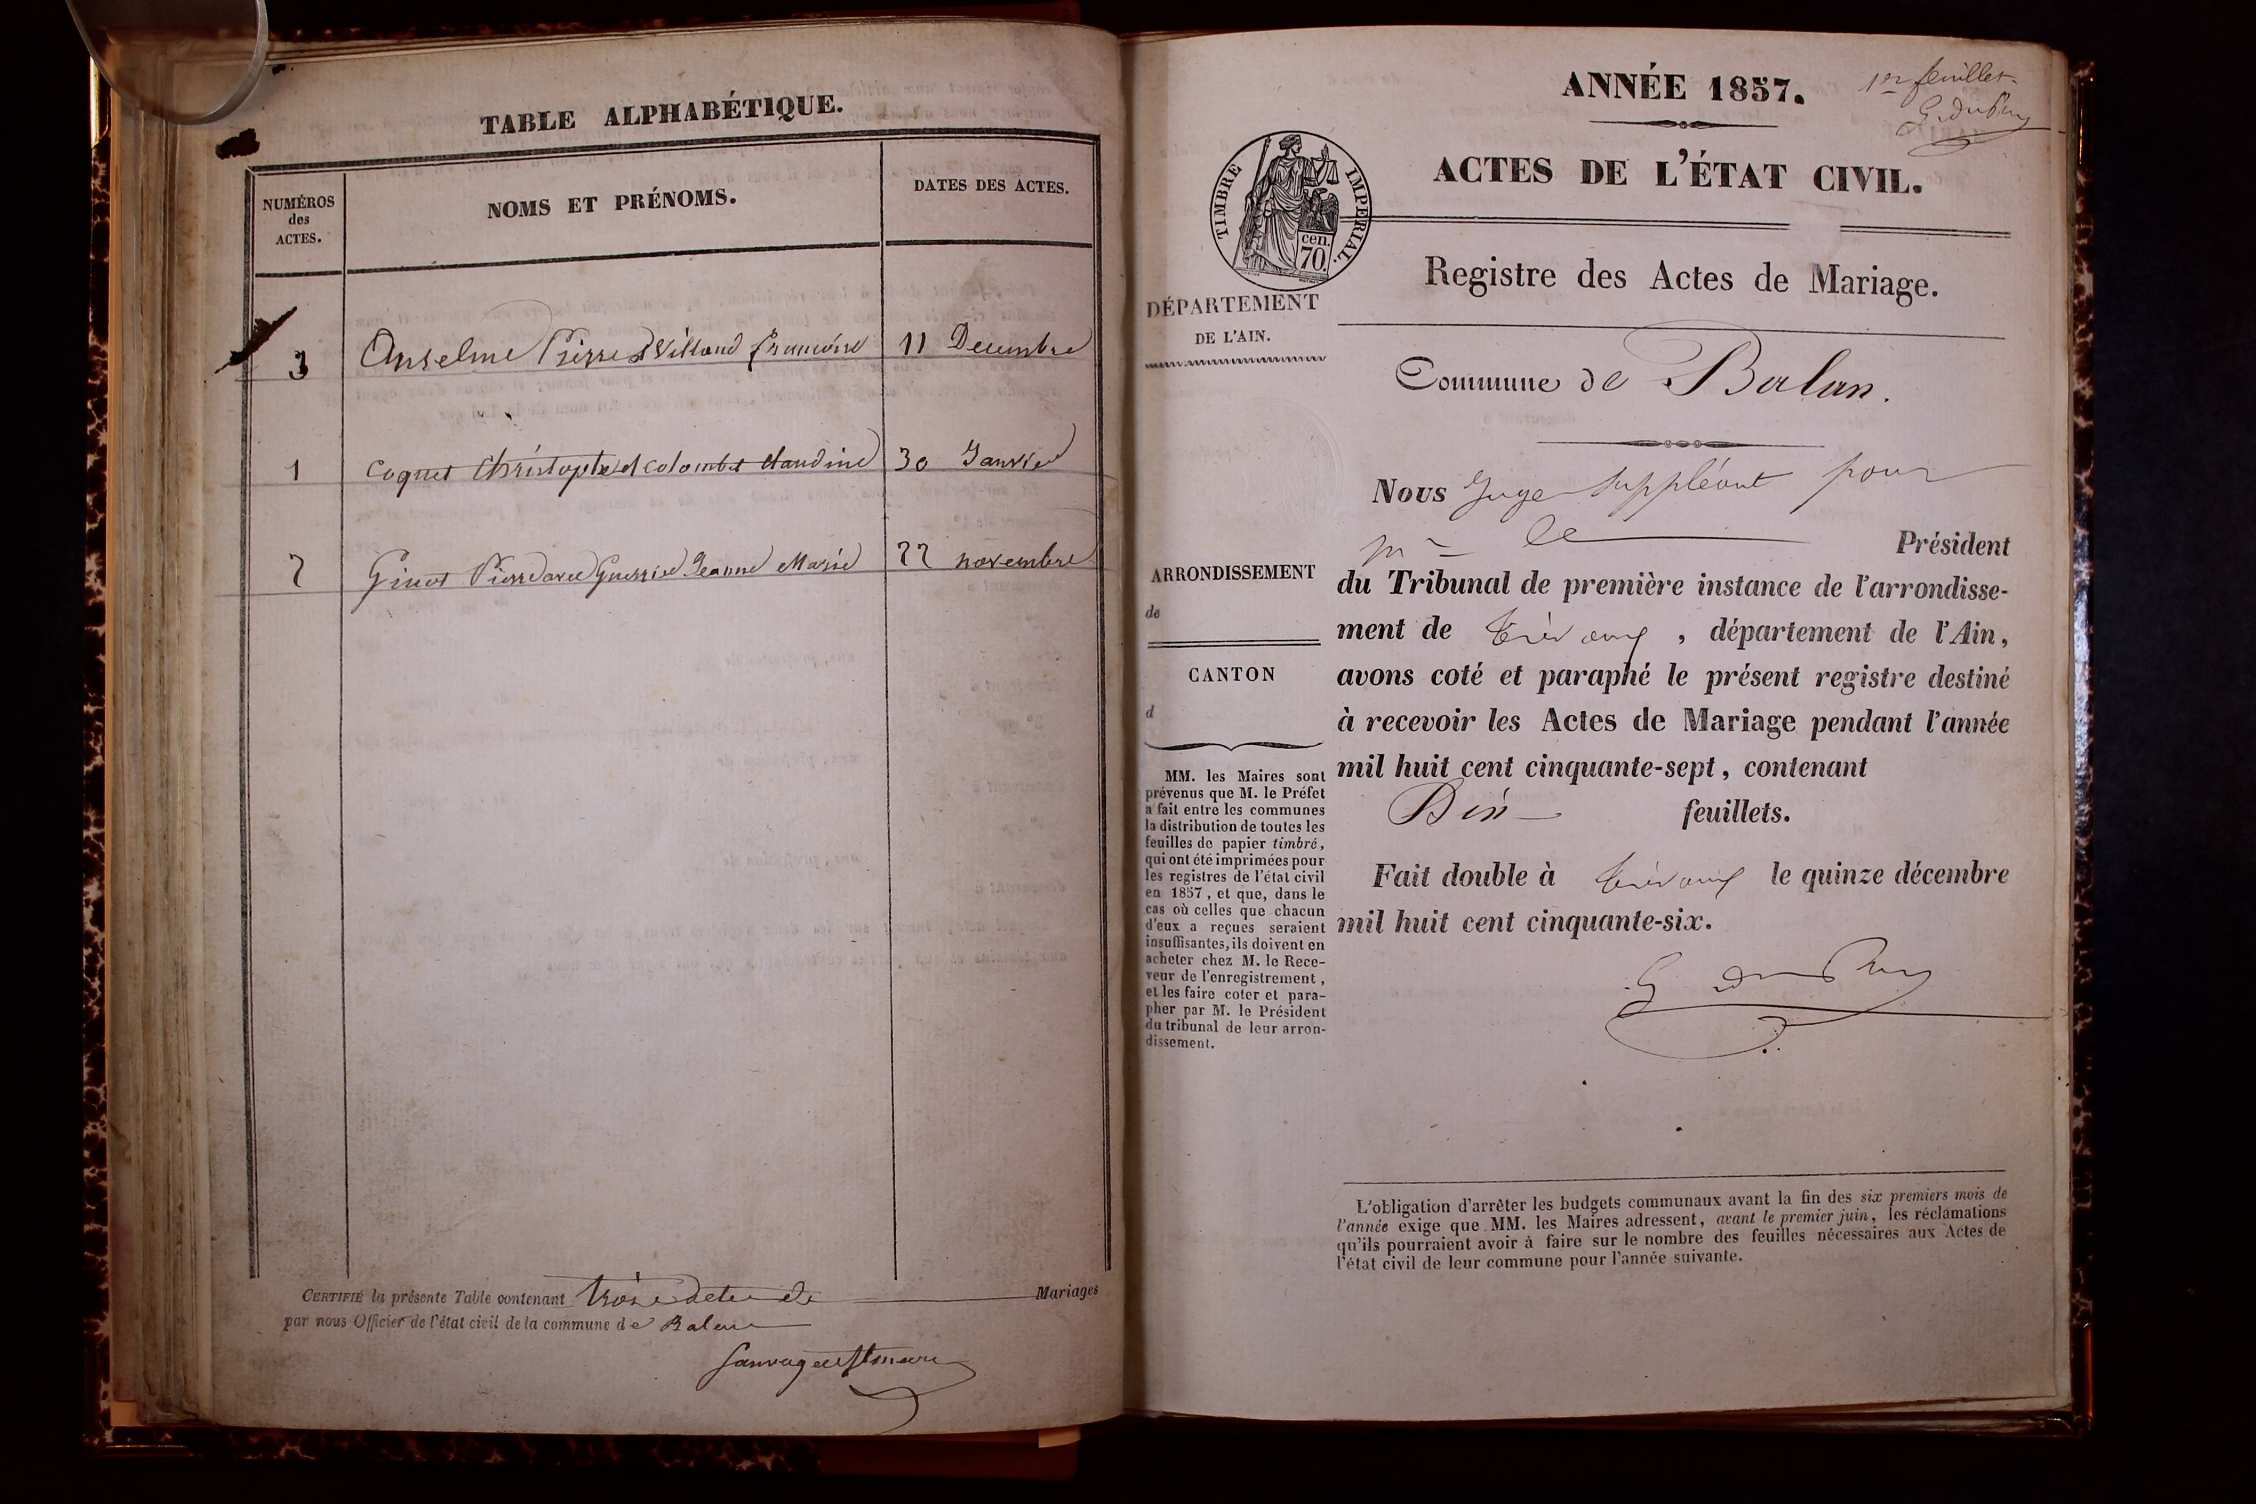 TABLE ALPHABÉTIQUE.
NUMÉROS
des
ACTES.
NOMS ET PRÉNOMS.
DATES DES ACTES.
3 Anselme Pierre et Villand Francoise 11 Decembre
1 Coquet Christophe et Colombet Claudine 30 Janvier
2 Ginot Pierre avec Guerrie Jeanne Marie 22 novembre
CERTIFIÉ la présente Table contenant trois actes de Mariages
par nous Officier de l'état civil de la commune de Balan
1er feuillet
G. Dupuy
ANNÉE 1857.
ACTES DE L'ÉTAT CIVIL.
TIMBRE IMPERIAL.
cen.
70.
Registre des Actes de Mariage.
DÉPARTEMENT
DE L'AIN.
Commune de Balan.
ARRONDISSEMENT
de
CANTON
d
MM. les Maires sont
prévenus que M. le Préfet
a fait entre les communes
la distribution de toutes les
feuilles de papier timbré,
qui ont été imprimées pour
les registres de l'état civil
en 1857, et que, dans le
cas où celles que chacun
d'eux a reçues seraient
insuffisantes, ils doivent en
acheter chez M. le Rece-
veur de l'enregistrement,
et les faire coter et para-
pher par M. le Président
du tribunal de leur arron-
dissement.
Nous Juge suppléant pour
Mr le Président
du Tribunal de première instance de l'arrondisse-
ment de Trévoux, département de l'Ain,
avons coté et paraphé le présent registre destiné
à recevoir les Actes de Mariage pendant l'année
mil huit cent cinquante-sept, contenant
Dix feuillets.
Fait double à Trévoux le quinze décembre
mil huit cent cinquante-six.
G Dupuy
L'obligation d'arrêter les budgets communaux avant la fin des six premiers mois de
l'année exige que MM. les Maires adressent, avant le premier juin, les réclamations
qu'ils pourraient avoir à faire sur le nombre des feuilles nécessaires aux Actes de
l'état civil de leur commune pour l'année suivante.